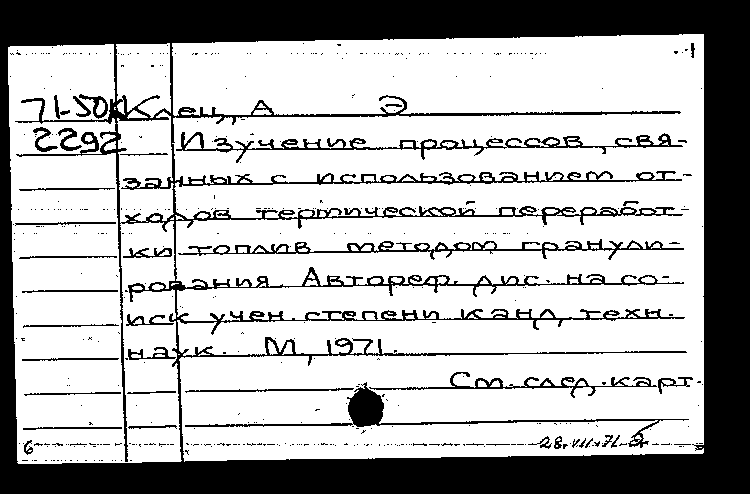 1
71-50К Клец, А Э
2292 Изучение процессов, свя-
занных с использованием от-
ходов термической переработ-
ки топлив методом гранули-
рования Автореф. дис. на со-
иск учен. степени канд, техн.
наук. М, 1971.
См. след. карт.
6 28.VII.71